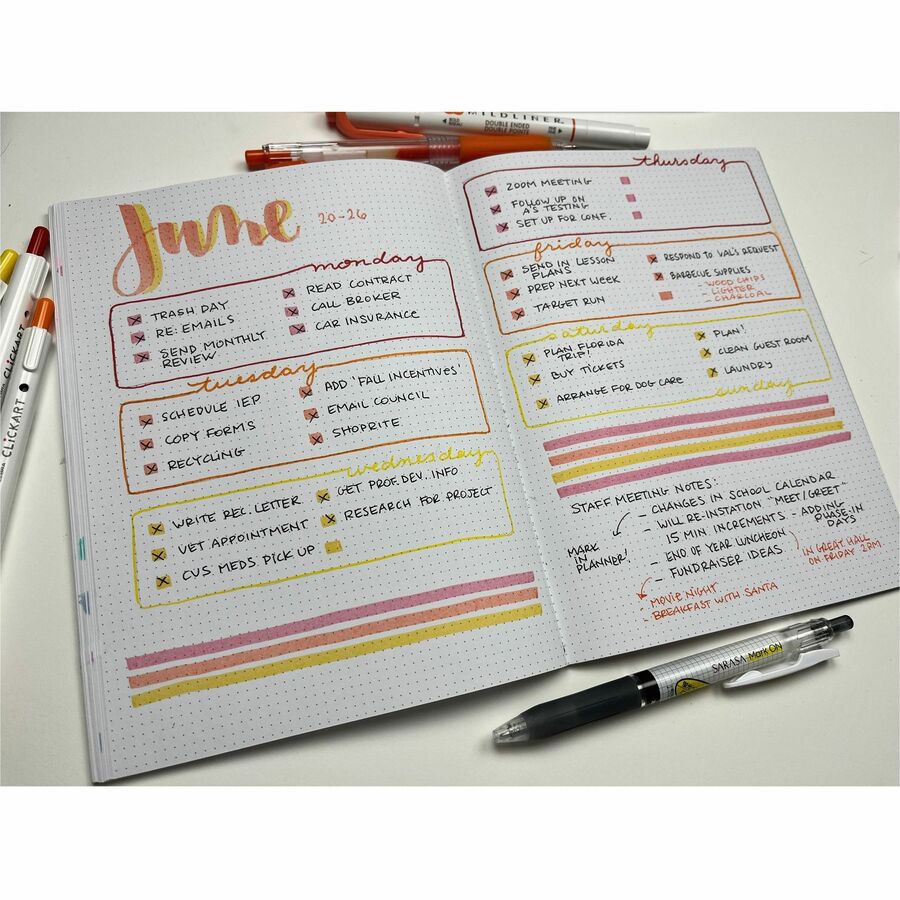 MILDLINER
DOUBLE ENDED
DOUBLE POINTS
June 20-26
monday
TRASH DAY
RE: EMAILS
SEND MONTHLY
REVIEW
READ CONTRACT
CALL BROKER
CAR INSURANCE
tuesday
SCHEDULE IEP
COPY FORMS
RECYCLING
ADD 'FALL INCENTIVES'
EMAIL COUNCIL
SHOPRITE
wednesday
WRITE REC. LETTER
VET APPOINTMENT
CVS MEDS PICK UP
GET PROF. DEV. INFO
RESEARCH FOR PROJECT
thursday
ZOOM MEETING
FOLLOW UP ON
A'S TESTING
SET UP FOR CONF.
friday
SEND IN LESSON
PLANS
PREP NEXT WEEK
TARGET RUN
RESPOND TO VAL'S REQUEST
BARBECUE SUPPLIES
- WOOD CHIPS
LIGHTER
- CHARCOAL
saturday
PLAN FLORIDA
TRIP!
BUY TICKETS
ARRANGE FOR DOG CARE
PLAN!
CLEAN GUEST ROOM
LAUNDRY
sunday
STAFF MEETING NOTES:
- CHANGES IN SCHOOL CALENDAR
- WILL RE-INSTATION "MEET/GREET"
15 MIN INCREMENTS - ADDING
PHASE-IN
DAYS
- END OF YEAR LUNCHEON
- FUNDRAISER IDEAS
MARK
IN
PLANNER!
IN GREAT HALL
ON FRIDAY 2PM
- MOVIE NIGHT
- BREAKFAST WITH SANTA
CLiCKART
CLiCKART
SARASA Mark ON